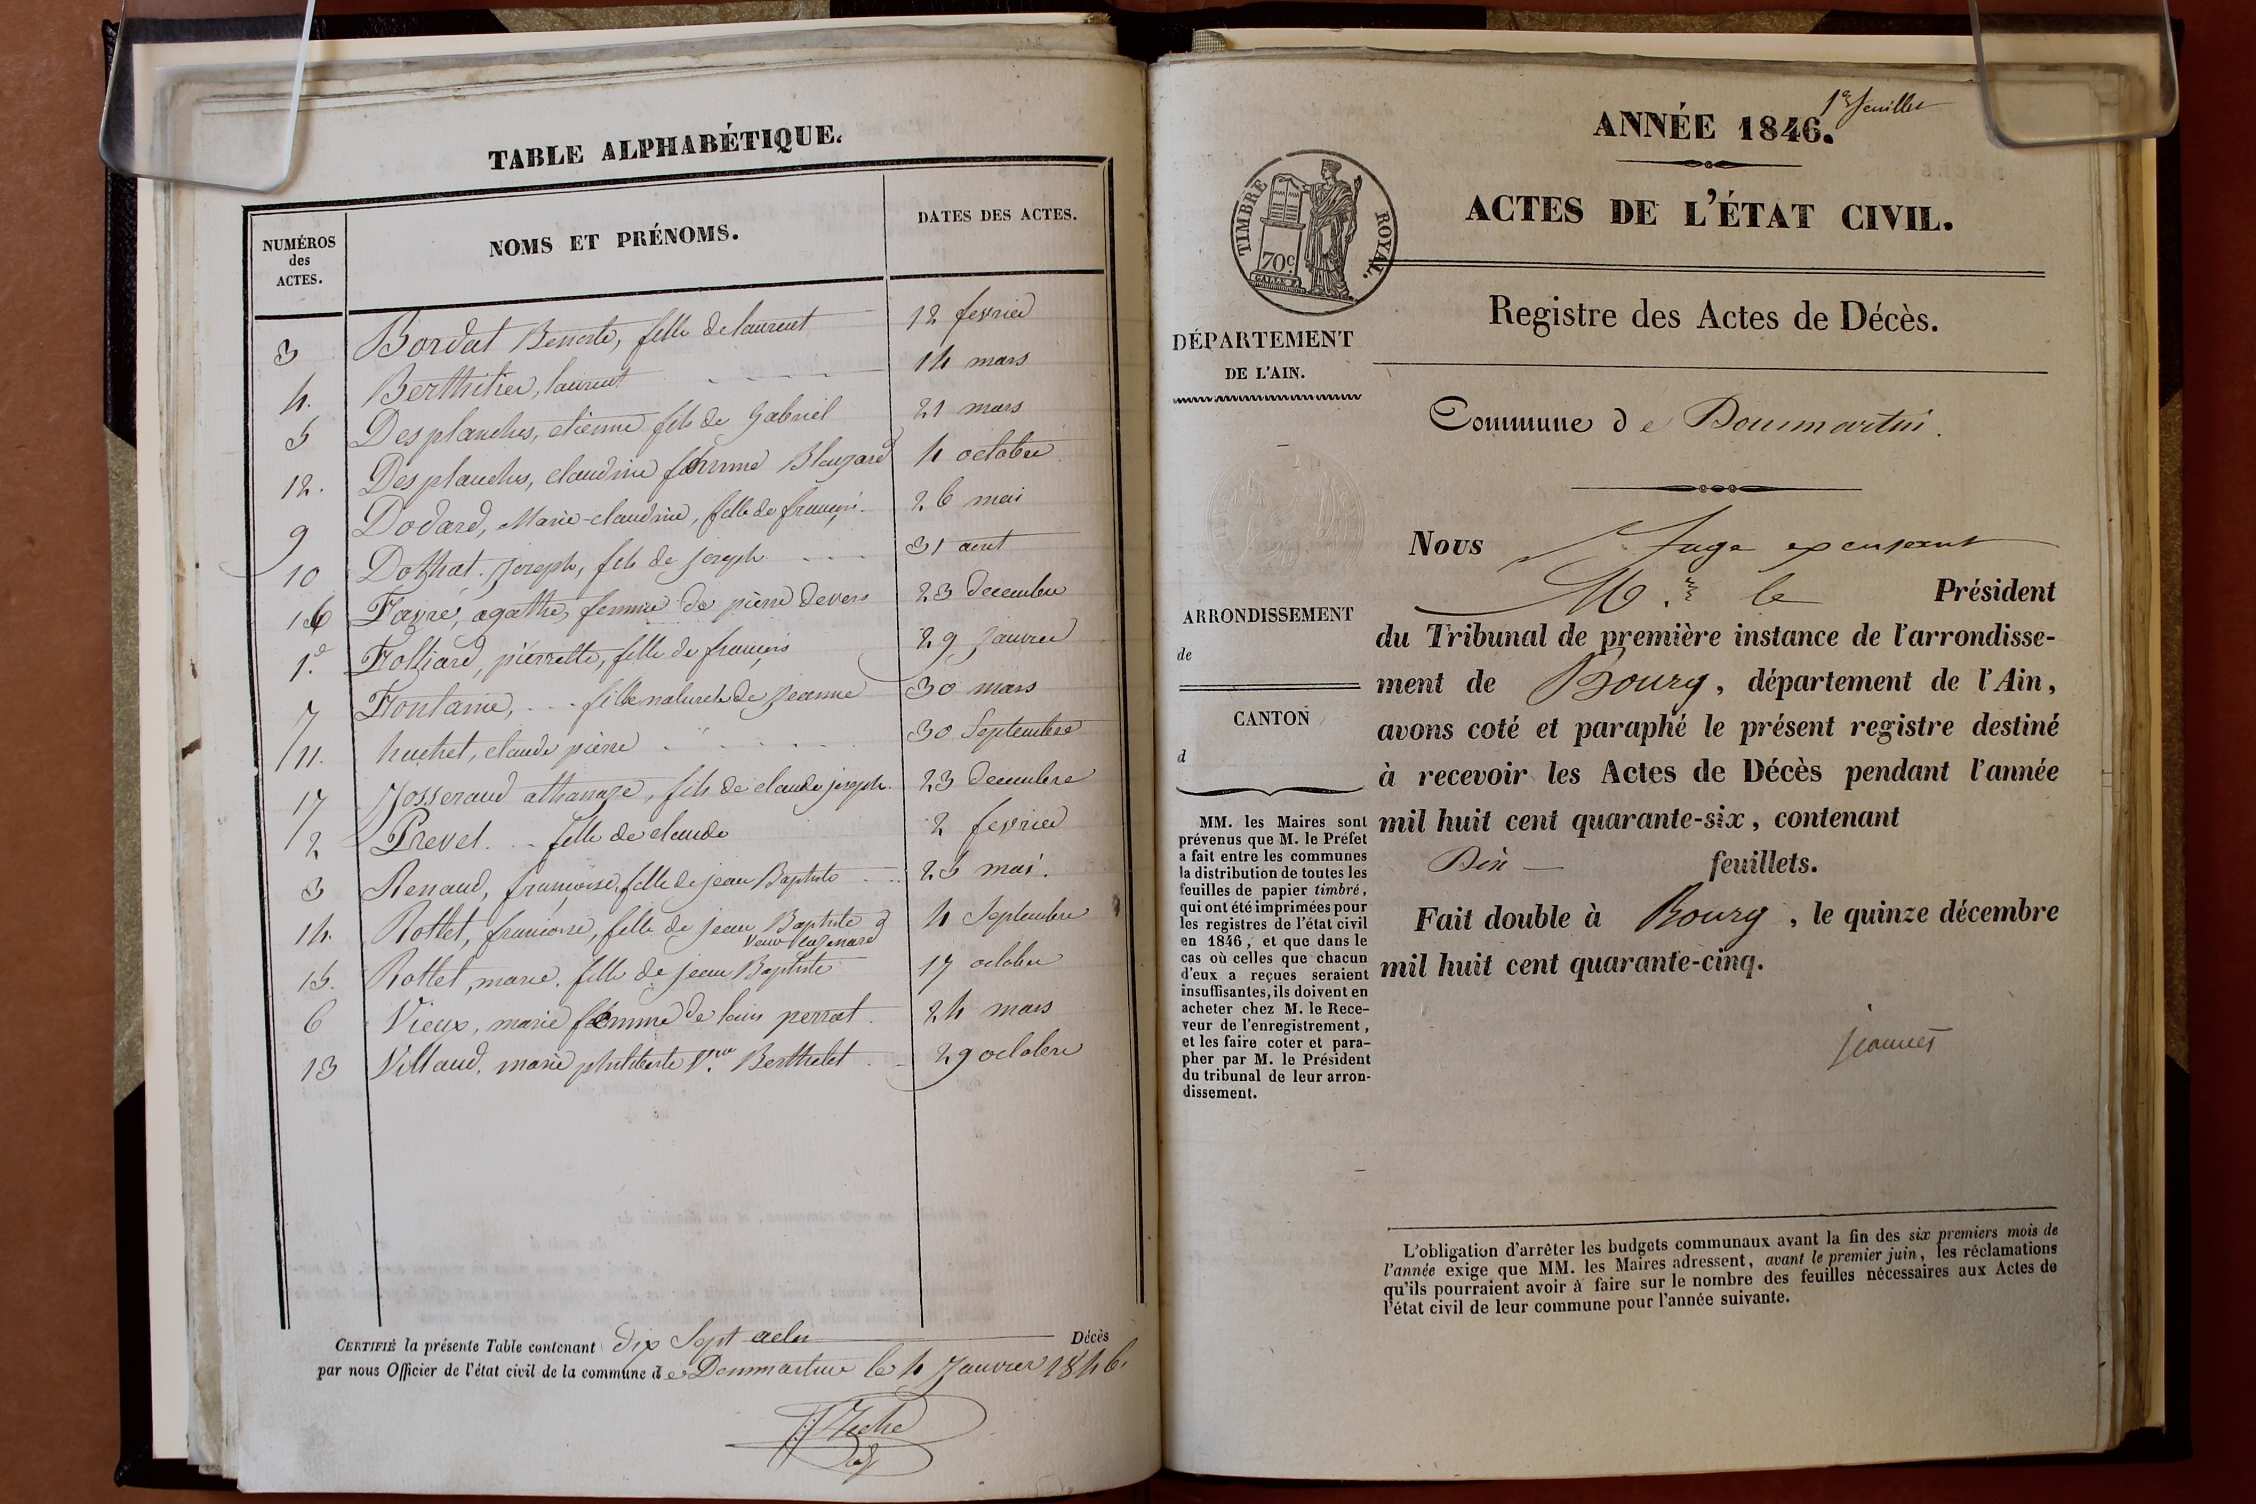 TABLE ALPHABÉTIQUE.
NUMÉROS
des
ACTES.
NOMS ET PRÉNOMS.
DATES DES ACTES.
3 Bordat Benoite, fille de laurent 12 fevrier
4. Berthelier, laurent 14 mars
5 Desplanches, etienne fils de gabriel 21 mars
12. Desplanches, claudine femme 4 octobre
9 Dodard, Marie-claudine, fille de françois 26 mai
10 Dothat. joseph, fils de joseph 31 aout
16 Favre, agathe, femme de pierre devers 23 decembre
1er Folliard, pierrette, fille de françois 29 janvier
7 Fontaine, fille naturelle de jeanne 30 mars
11. huchet, claude pierre 30 Septembre
17 Josserand athanaze, fils de claude joseph. 23 decembre
2 Prevel. fille de claude 2 fevrier
8 Renaud, françoise, fille de jean Baptiste 25 mai.
14. Rottet, françoise, fille de jean Baptiste 4 Septembre
veuve
15. Rottet, marie. fille de jean Baptiste 17 octobre
6 Vieux, marie femme de louis perrat. 24 mars
13 Villaud, marie philiberte Vve Berthelet 29 octobre
CERTIFIÉ la présente Table contenant dix Sept actes Décès
par nous Officier de l'état civil de la commune de Dommartin le 4 Janvier 1846.
1er feuillet
ANNÉE 1846.
ACTES DE L'ÉTAT CIVIL.
TIMBRE ROYAL.
70c
Registre des Actes de Décès.
DÉPARTEMENT
DE L'AIN.
Commune de Dommartin.
Nous Juge
Mr le Président
du Tribunal de première instance de l'arrondisse-
ment de Bourg, département de l'Ain,
avons coté et paraphé le présent registre destiné
à recevoir les Actes de Décès pendant l'année
mil huit cent quarante-six, contenant
Dix feuillets.
Fait double à Bourg, le quinze décembre
mil huit cent quarante-cinq.
ARRONDISSEMENT
de
CANTON
d
MM. les Maires sont
prévenus que M. le Préfet
a fait entre les communes
la distribution de toutes les
feuilles de papier timbré,
qui ont été imprimées pour
les registres de l'état civil
en 1846, et que dans le
cas où celles que chacun
d'eux a reçues seraient
insuffisantes, ils doivent en
acheter chez M. le Rece-
veur de l'enregistrement,
et les faire coter et para-
pher par M. le Président
du tribunal de leur arron-
dissement.
L'obligation d'arrêter les budgets communaux avant la fin des six premiers mois de
l'année exige que MM. les Maires adressent, avant le premier juin, les réclamations
qu'ils pourraient avoir à faire sur le nombre des feuilles nécessaires aux Actes de
l'état civil de leur commune pour l'année suivante.